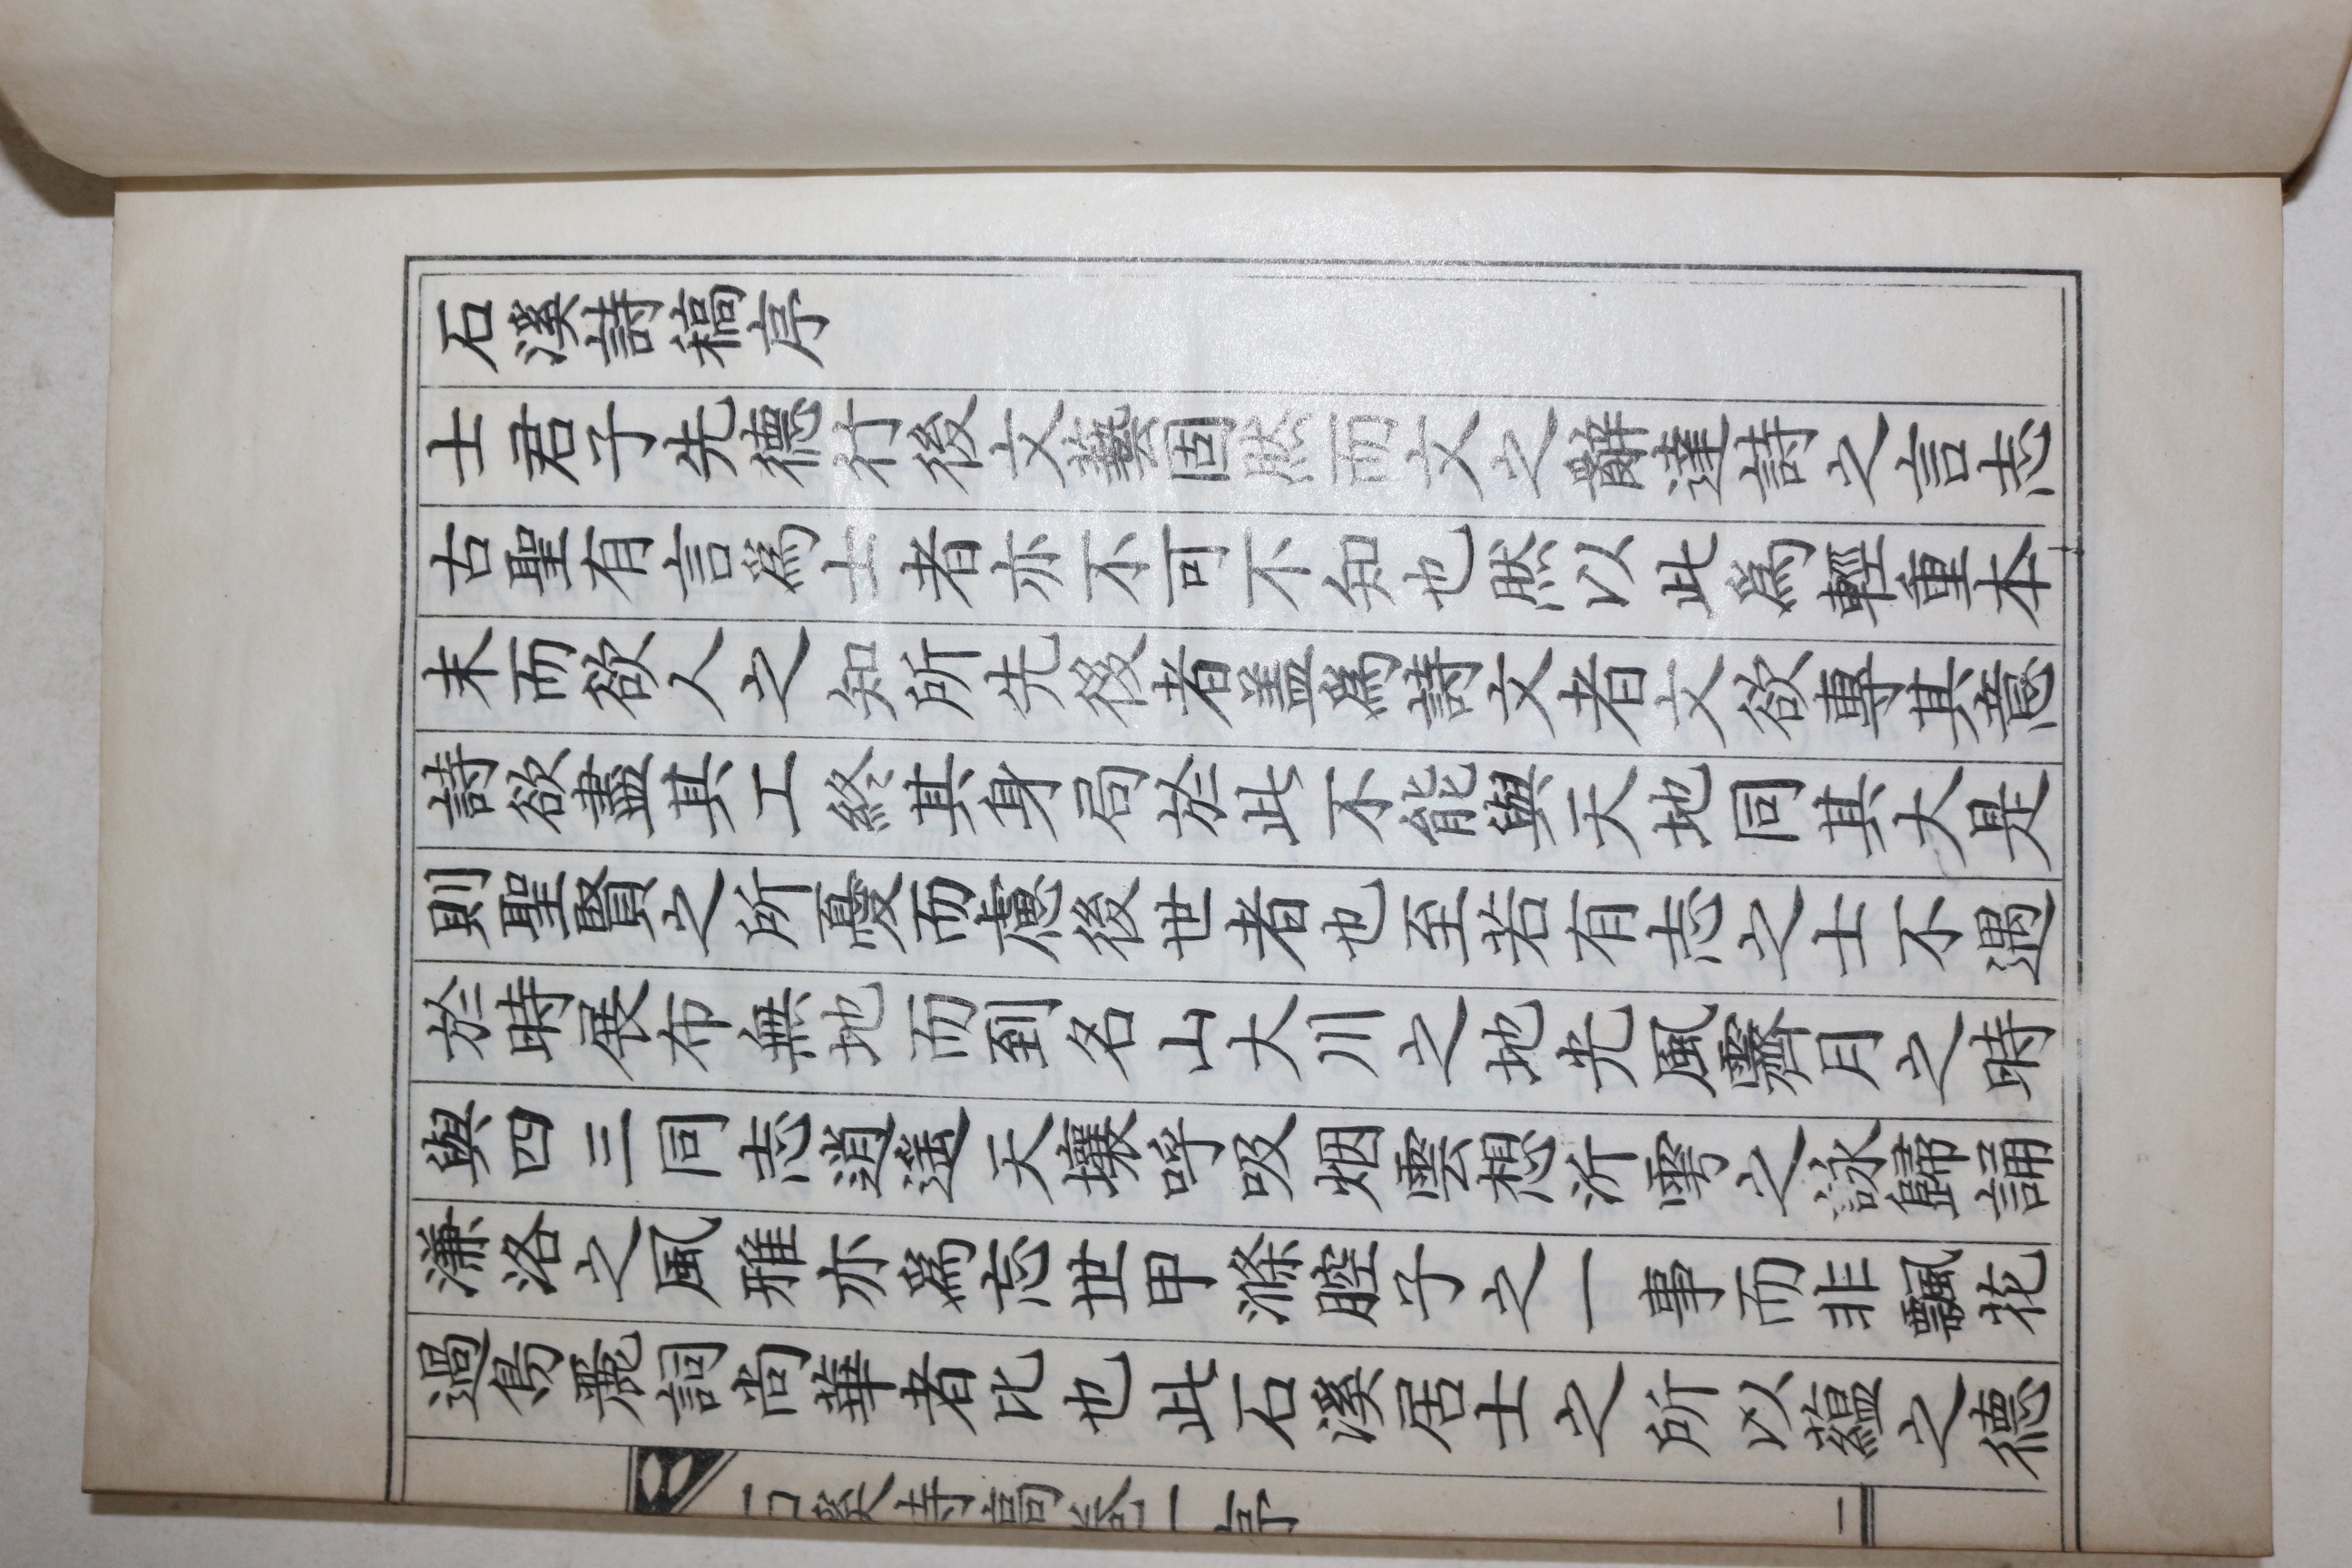 石溪詩稿序
士君子先德行後文藝固然而文之辭達詩之言志
古聖有言爲士者亦不可不知也然以此爲輕重本
末而欲人之知所先後者盖爲詩文者文欲專其意
詩欲盡其工終其身局於此不能與天地同其大是
則聖賢之所憂而慮後世者也至若有志之士不遇
於時展布無地而到名山大川之地光風霽月之時
與四三同志逍遥天壤呼吸烟雲想沂雩之詠歸誦
濂洛之風雅亦爲忘世甲滌腔子之一事而非飄花
過鳥麗詞尚華者比也此石溪居士之所以蘊之德
石溪詩稿卷一 序
二